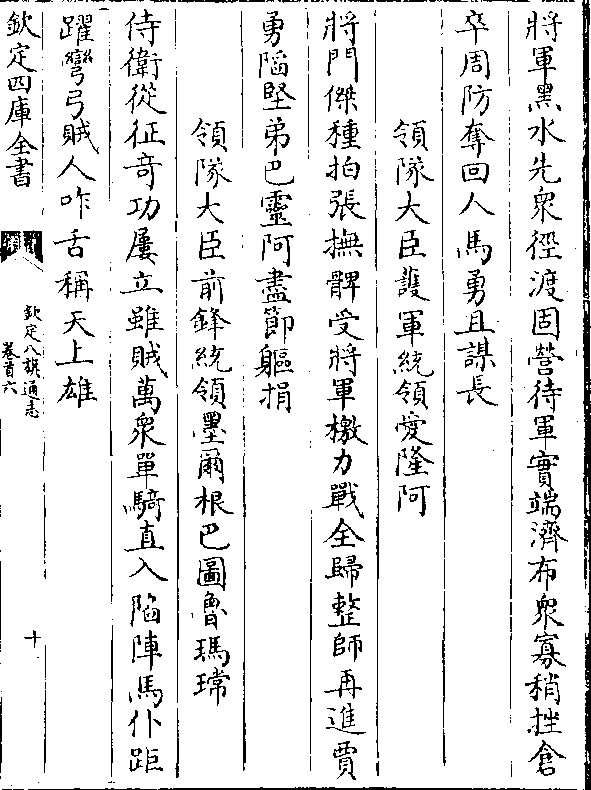 將軍黑水先衆徑渡固營待軍實端濟布衆寡稍挫倉
卒周防奪回人馬勇且謀長
領隊大臣護軍統領愛隆阿
將門傑種拍張撫髀受將軍檄力戰全歸整師再進賈
勇陷堅弟巴靈阿盡節軀捐
領隊大臣前鋒統領墨爾根巴圖魯瑪瑺
侍衛從征竒功屢立雖賊萬衆單騎直入陷陣馬仆距
躍彎弓賊人咋舌稱天上雄
欽定四庫全書
欽定八旗通志
卷首六
十